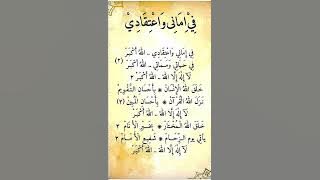 فِيْ إِمَانِي وَاعْتِقَادِيْ
فِي إِمَانِي وَاعْتِقَادِي - اللهُ أَكْبَرْ
فِي حَيَاتِي وَمَمَاتِي - اللهُ أَكْبَرْ (٢)
لَا إِلَهَ إِلَّا اللهُ - اللهُ أَكْبَرْ
خَلَقَ اللهُ الْإِنْسَانْ * بِأَحْسَانِ التَّقْوِيمْ
نَزَلَ اللهُ الْقُرْآنْ * بِأَحْسَانِ الْمُبِينْ (٢)
لَا إِلَهَ إِلَّا اللهُ - اللهُ أَكْبَرْ
خَلَقَ اللهُ الْمُخْتَارْ * بِخَيْرِ الْأَنَامْ ٢
يَأْتِي يَوْمِ الزِّحَامْ * شَفِيعَ الْأَنَامْ ٢
لَا إِلَهَ إِلَّا اللهُ - اللهُ أَكْبَرْ